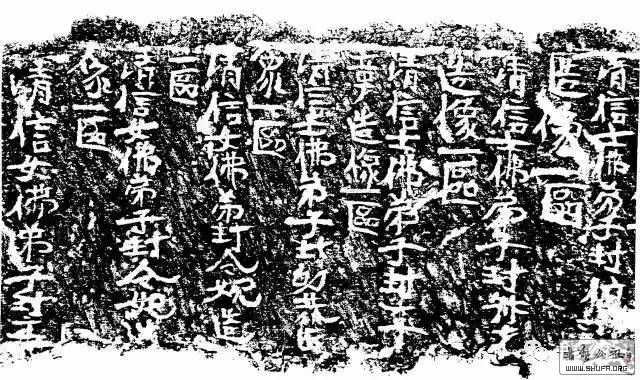 清信士佛弟子封
造像一區
清信士佛弟子封
造像一區
清信士佛弟子封
造像一區
清信士佛弟子封
象一區
清信女佛弟封令妃造
一區
清信女佛弟子封令妃造
象一區
清信女佛弟子封
WWW.SHUFA.ORG